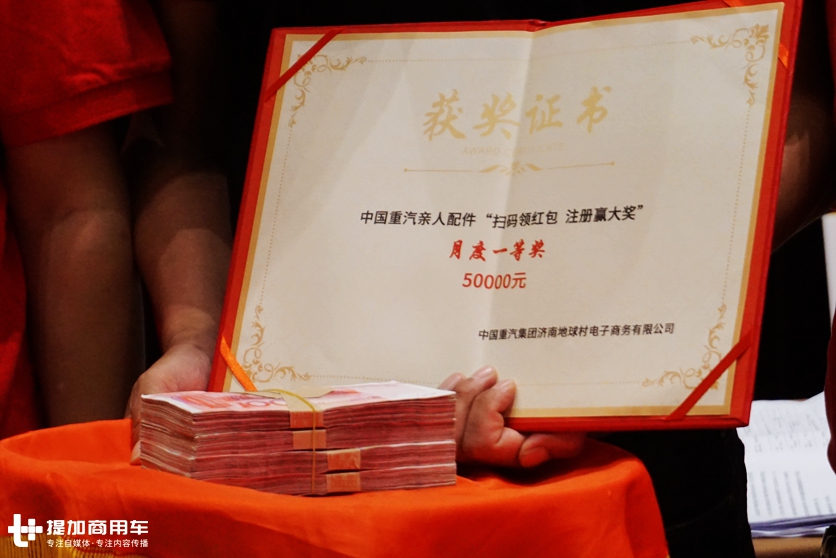 获奖证书
中国重汽亲人配件“扫码领红包 注册赢大奖”
月度一等奖
50000元
中国重汽集团济南地球村电子商务有限公司
提加商用车
专注自媒体·专注内容传播